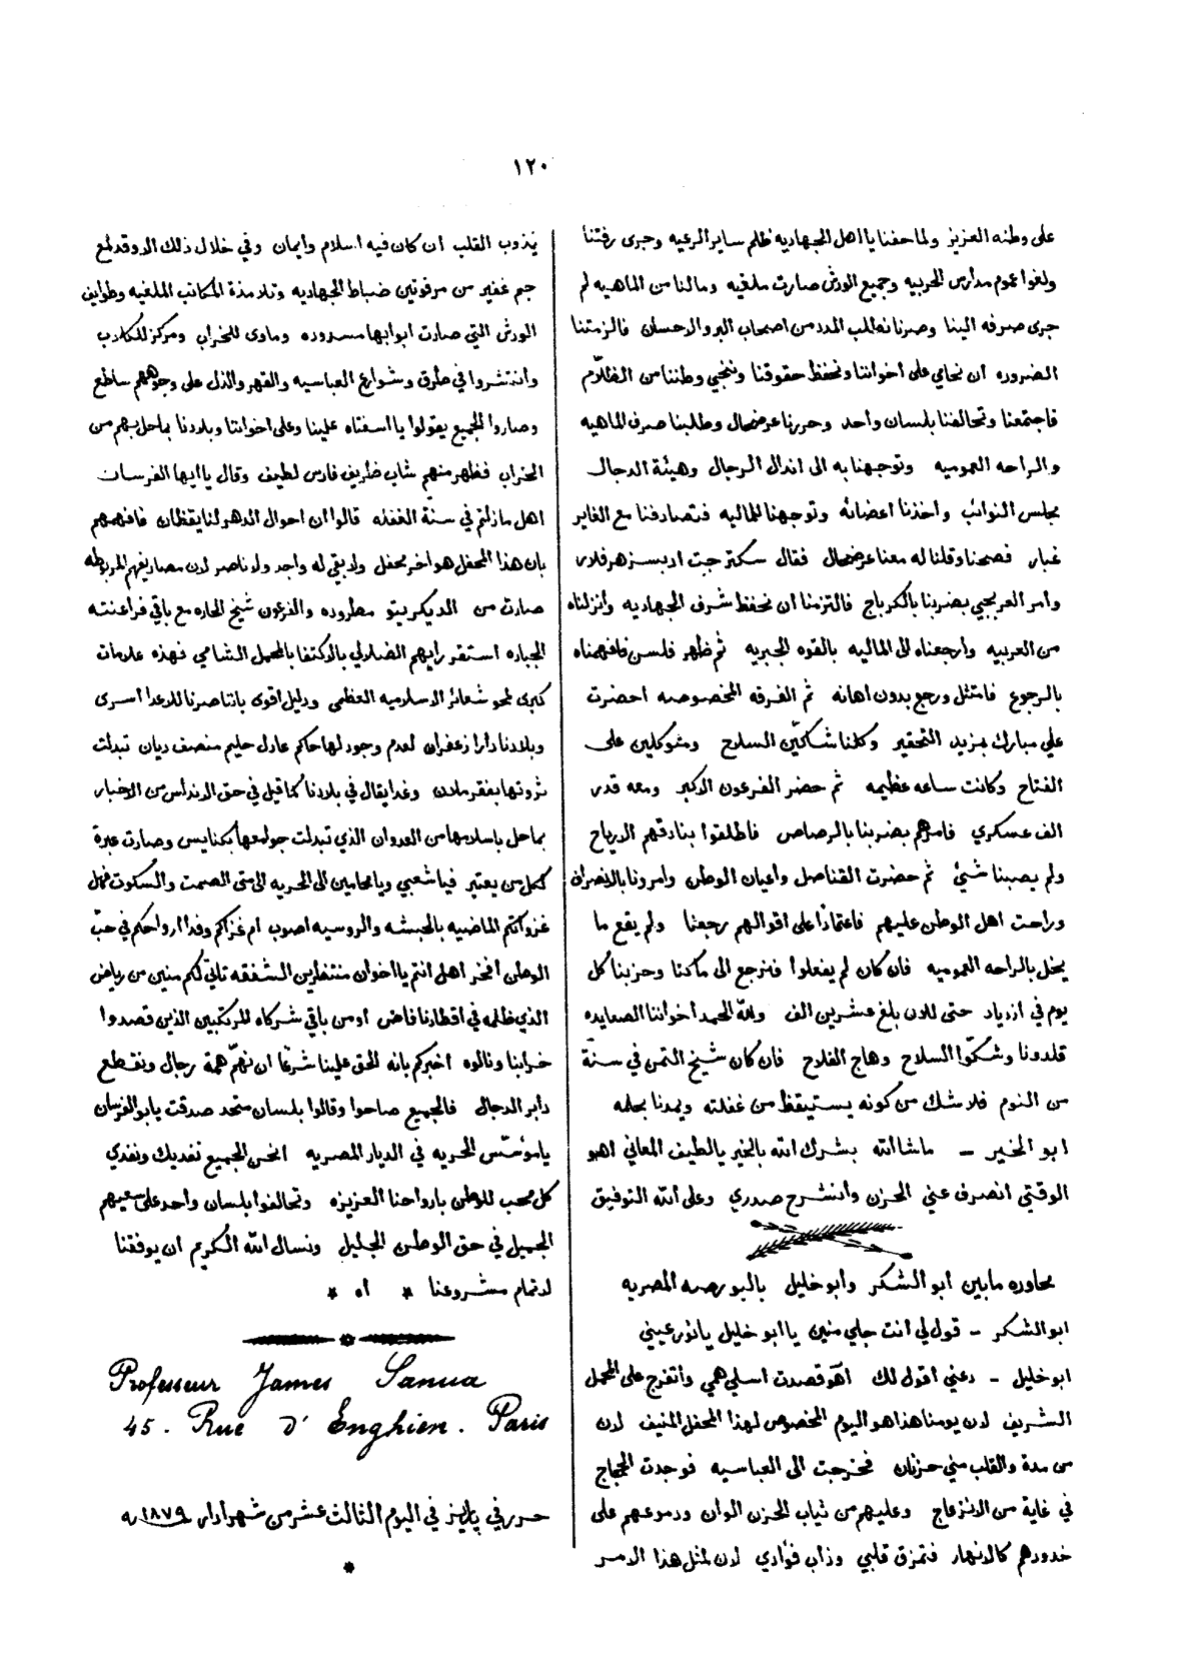 ١٢٠
على وطنه العزيز ولما حفنا يا اهل الجهاديه ظلم ساير الرعيه وجرى رفتنا
ولغوا عموم مدارس الحربيه وجميع الورش صارت ملغيه ومالنا من الماهيه لم
جرى صرفه الينا وصرنا نطلب المدد من اصحاب البر والاحسان فالزمتنا
الضروره ان نحامي على اخواننا ونحفظ حقوقنا وننجي وطننا من الظلّام
فاجتمعنا وتحالفنا بلسان واحد وحررنا عرضحال وطلبنا صرف الماهيه
والراحه العموميه وتوجهنا به الى اندال الرجال وهيئة الدجال
مجلس النوائب واخذنا اعضائه وتوجهنا للماليه فتصادفنا مع الغاير
غبار فصحنا وقلنا له معنا عرضحال فقال سكترجبت ادبسز هرفلار
وامر العربجي بضربنا بالكرباج فالتزمنا ان نحفظ شرف الجهاديه وانزلناه
من العربيه وارجعناه الى الماليه بالقوه الجبريه ثم ظهر فلسن فافهمناه
بالرجوع فامتثل ورجع بدون اهانه ثم الفرقه المخصوصه احضرت
علي مبارك بمزيد التحقير وكلنا شاكّين السلاح ومتوكلين على
الفتاح وكانت ساعه عظيمه ثم حضر الفرعون الاكبر ومعه قدر
الف عسكري فامرهم بضربنا بالرصاص فاطلقوا بنادقهم الارياح
ولم يصبنا شئ ثم حضرت القناصل واعيان الوطن وامرونا بالانصراف
وراحت اهل الوطن عليهم فاعتمادًا على اقوالهم رجعنا ولم يقع ما
يخل بالراحه العموميه فان كان لم يفعلوا فنرجع الى ماكنا وحزبنا كل
يوم في ازدياد حتى للان بلغ عشرين الف ولله الحمد اخواننا الصعايده
قلدونا وشكّوا السلاح وهاج الفلاح فان كان شيخ التمن في سنة
من النوم فلاشك من كونه يستيقظ من غفلته ويمدنا بحلمه
ابو الخير - ماشاالله بشرك الله بالخير يالطيف المعاني اهو
الوقتي انصرف عني الحزن وانشرح صدري وعلى الله التوفيق
محاوره مابين ابو الشكر وابو خليل بالبورصه المصريه
ابو الشكر - قول لي انت جاي منين يا ابو خليل يا نور عيني
ابو خليل - دعني اقول لك اهو قصدت اسلي همي واتفرج على المحمل
الشريف لان يومنا هذا هو اليوم المخصوص لهذا المحفل المنيف لان
من مدة والقلب مني حزنان فخرجت الى العباسيه فوجدت الحجاج
في غاية من الانزعاج وعليهم من ثياب الحزن الوان ودموعهم على
خدودهم كالانهار فتمزق قلبي وذاب فوادي لان لمثل هذا الامر
يذوب القلب ان كان فيه اسلام وايمان وفي خلال ذلك الا وقد لمع
جم غفير من مرفوتين ضباط الجهاديه وتلامذة المكاتب الملغيه وطوايف
الورش التي صارت ابوابها مسدوده وماوى للخراب ومركز للكلاب
وانتشروا في طرق وشوارع العباسيه والقهر والذل على وجوههم ساطع
وصاروا الجميع يقولوا يا اسفتاه علينا وعلى اخواننا وبلادنا بما حل بهم من
الخراب فظهر منهم شاب ظريف فارس لطيف وقال يا ايها الفرسان
اهل مازلتم في سنة الغفله قالوا ان احوال الدهر لنا يقظان فافهمهم
بان هذا المحفل هو اخر محفل ولا بقي له واجد ولا ناصر لان مصاريفهم المربوطه
صارت من الديكريتو مطروده والفرعون شيخ الحاره مع باقي فراعنته
الجباره استقر رايهم الضلالي بالاكتفا بالمحمل الشامي فهذه علامات
كبرى لمحو شعائر الاسلاميه العظمى ودليل اقوى باننا صرنا للاعدا اسرى
وبلادنا دارا زعفران لعدم وجود لها حاكم عادل حليم منصف ديان تبدلت
ثروتها بفقر ملان وغدا يقال في بلادنا كما قيل في حق الاندلس من الاخبار
بما حل باسلامها من العدوان الذي تبدلت جوامعها بكنايس وصارت عبرة
لكل من يعتبر فيا شعبي ويا محامين الى الحريه الى متى الصمت والسكوت فهل
غزواتكم الماضيه بالحبشه والروسيه اصوب ام غزاكم وفدا ارواحكم في حبّ
الوطن افخر اهل انتم يا اخوان منتظرين الشفقه تاتي لكم منين من رياض
الذي ظلمه في اقطارنا فاض او من باقي شركاه المرتكبين الذين قصدوا
خرابنا ونالوه اخبركم بانه لحق علينا شرعًا ان نهمّ همة رجال ونقطع
دابر الدجال فالجميع صاحوا وقالوا بلسان متحد صدقت يا ابو الفرسان
يا مؤسّس الحريه في الديار المصريه انحن الجميع نفديك ونفدي
كل محب للوطن بارواحنا العزيزه وتحالفوا بلسان واحد على سعيهم
الجميل في حق الوطن الجليل ونسال الله الكريم ان يوفقنا
لاتمام مشروعنا * اه *
Professeur James Sanua
45. Rue d'Enghien. Paris
حرر في پاريز في اليوم الثالث عشر من شهر ادار سنه ١٨٧٩